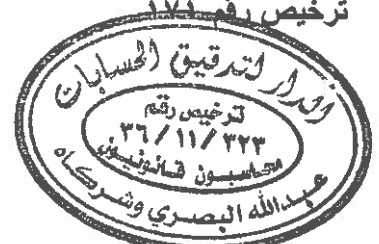 ترخيص رقم ١٧١
الدار لتدقيق الحسابات
ترخيص رقم
٣٦/١١/٣٢٣
محاسبون قانونيون
عبدالله البصري وشركاه